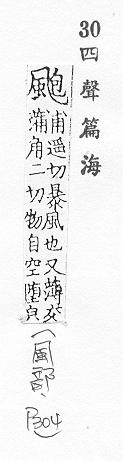 30四聲篇海
颮
甫遥切暴風也又薄交
蒲角二切物自空堕皃
(風部、P304)